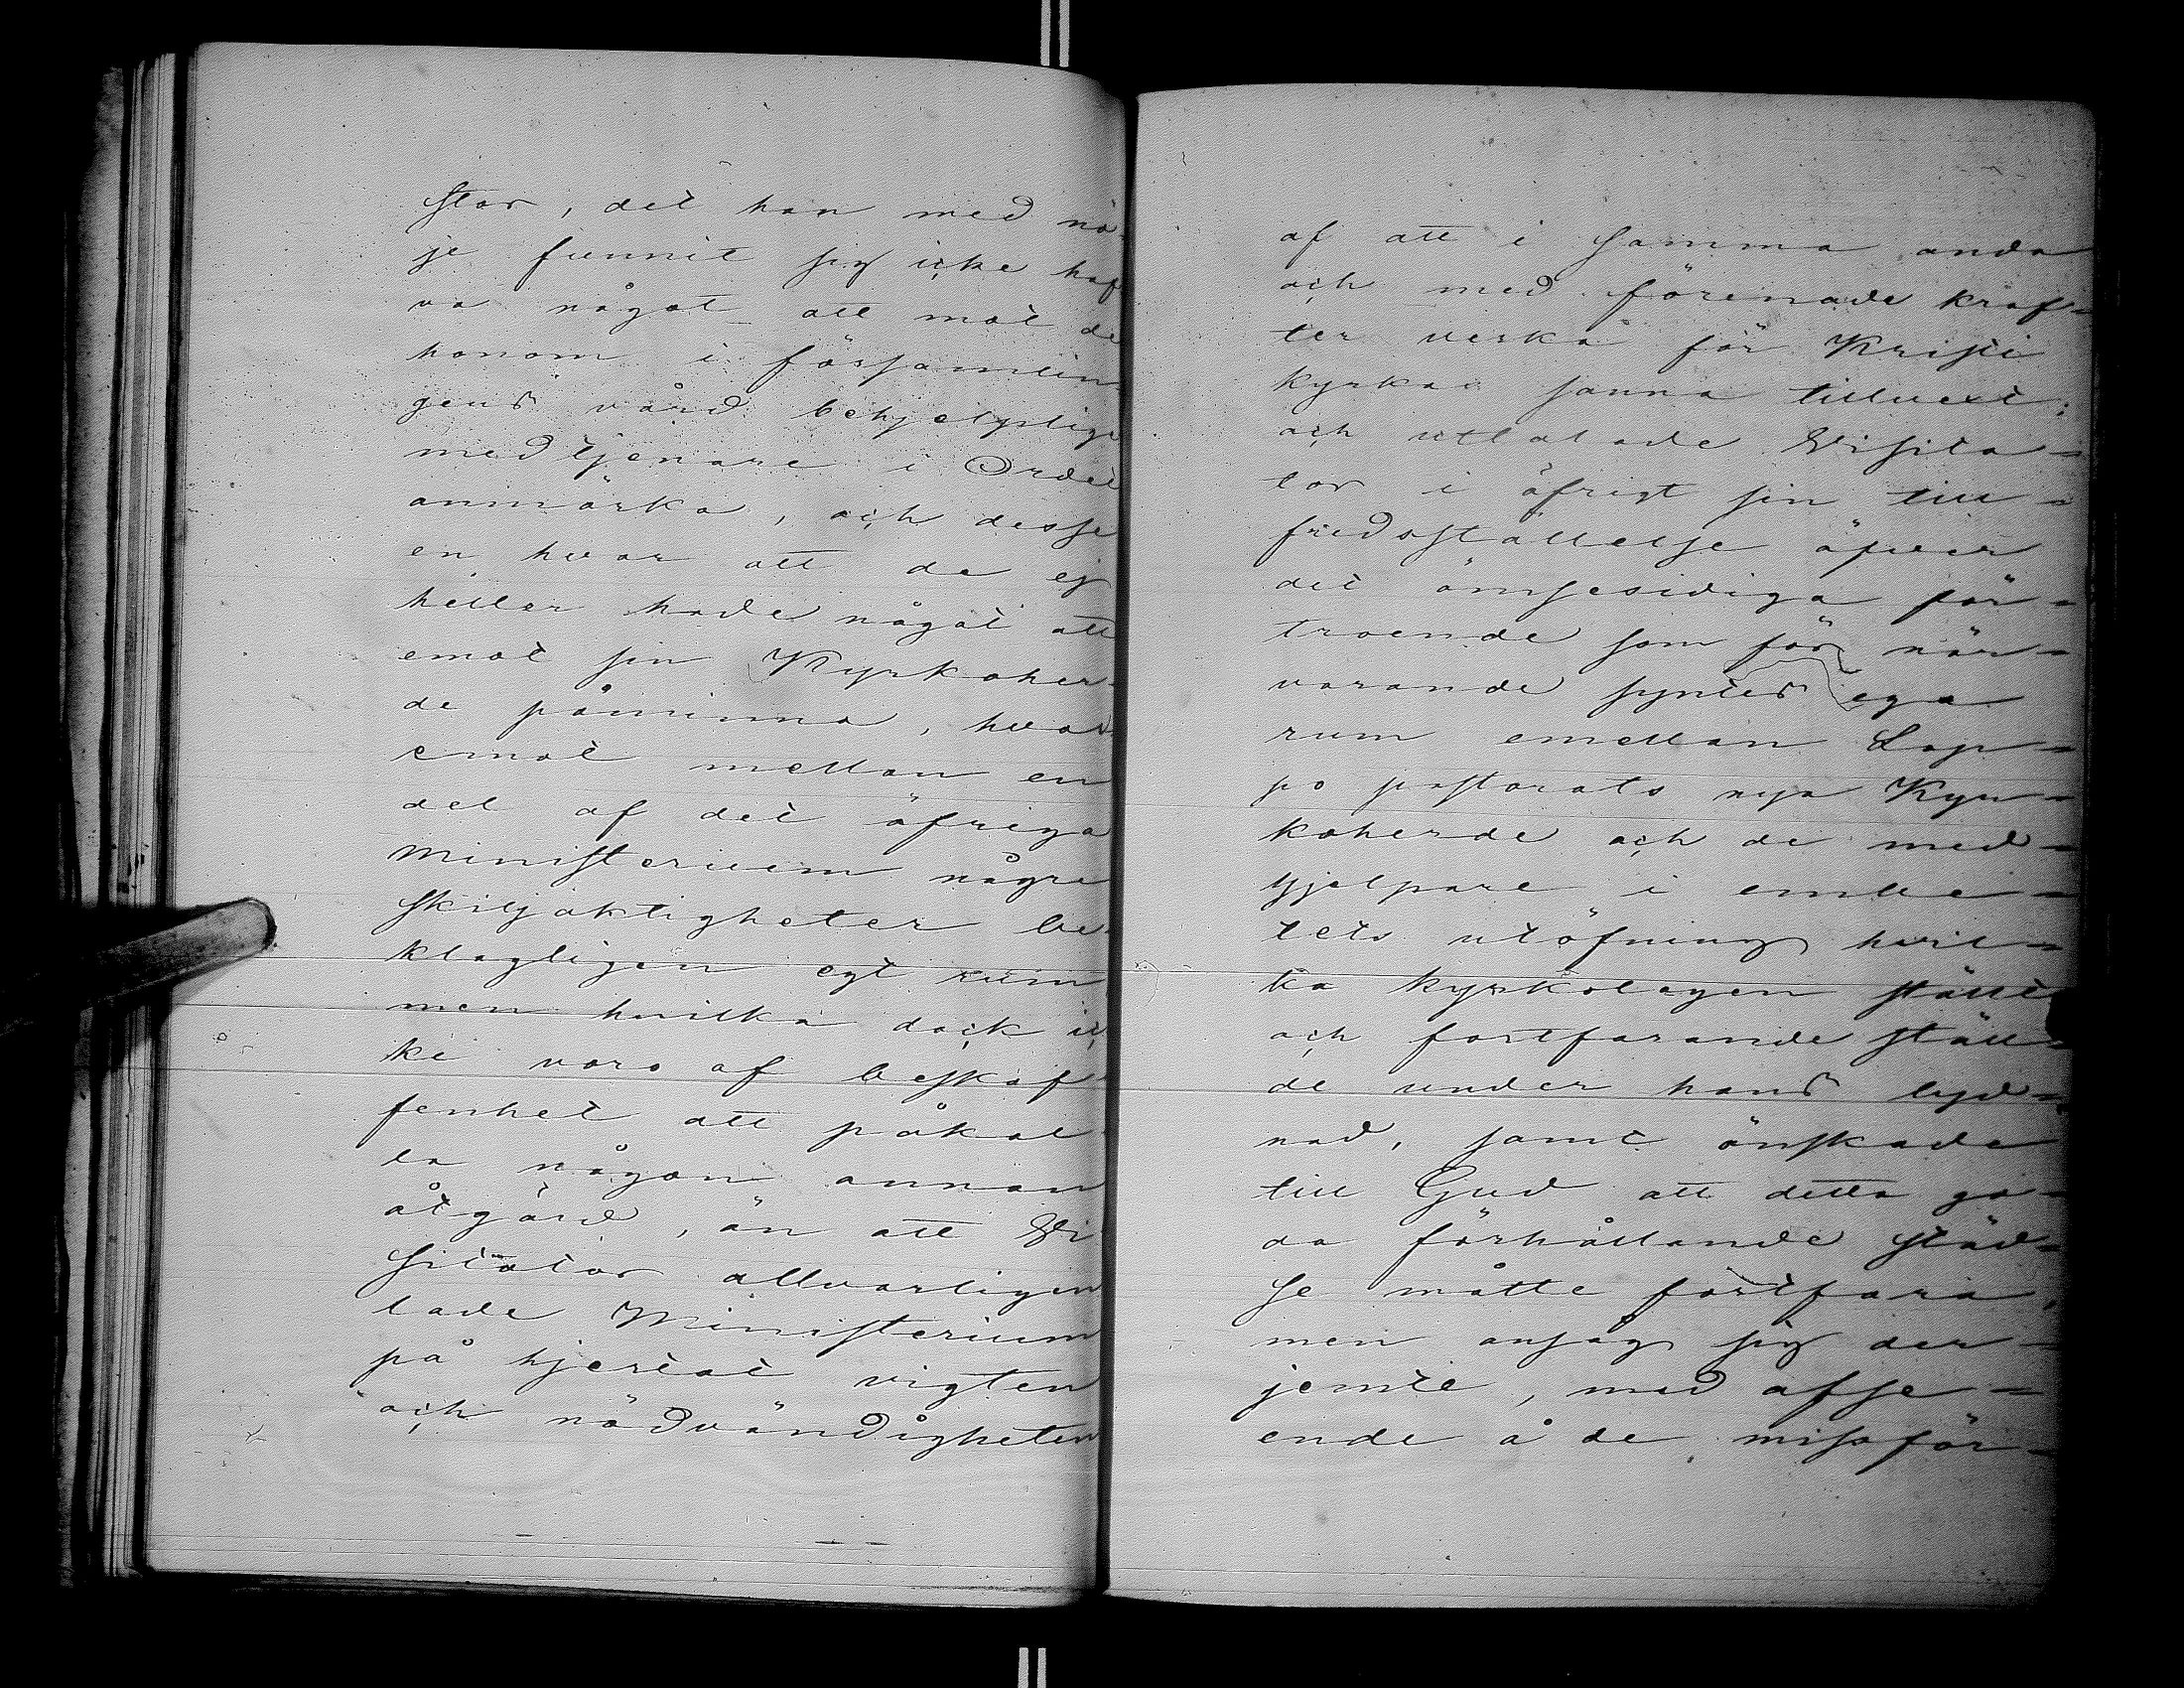 stor, det han med nö-
je funnit sig icke haf
va något att mot de
honom i församlin
gens vård behjelplige
medtjenare i Ordet
anmärka, och desse
en hvar att de ej
heller hade något att
emot sin Kyrkoher-
de påminna, hvar
emot mellan en
del af det öfriga
Ministerium några
skiljaktigheter be
klagligen egt rum
men hvilka dock ic
ke voro af beskaf
fenhet att påkal
la någon annan
åtgärd, än att Vi
sitator allvarligen
lade Ministerium
på hjertat vigten
och nödvändigheten
af att i samma anda
och med förenade kräf-
ter verka för Kristi
kyrkas sanna tillvext;
och uttalade Visita-
tor i öfrigt sin till-
fredsställelse öfver
det ömsesidiga för-
troende som för när-
varande syntes ega
rum emellan Lap-
po pastorats nya Kyr-
koherde och de med-
hjelpare i embe-
tets utöfning hvil-
ka kyrkolagen ställt
och fortfarande ställ-
de under hans lyd-
nad, samt önskade
till Gud att detta go-
da förhållande städ-
se måtte fortfara,
men ansåg sig der-
jemte, med afse-
ende å de missför-